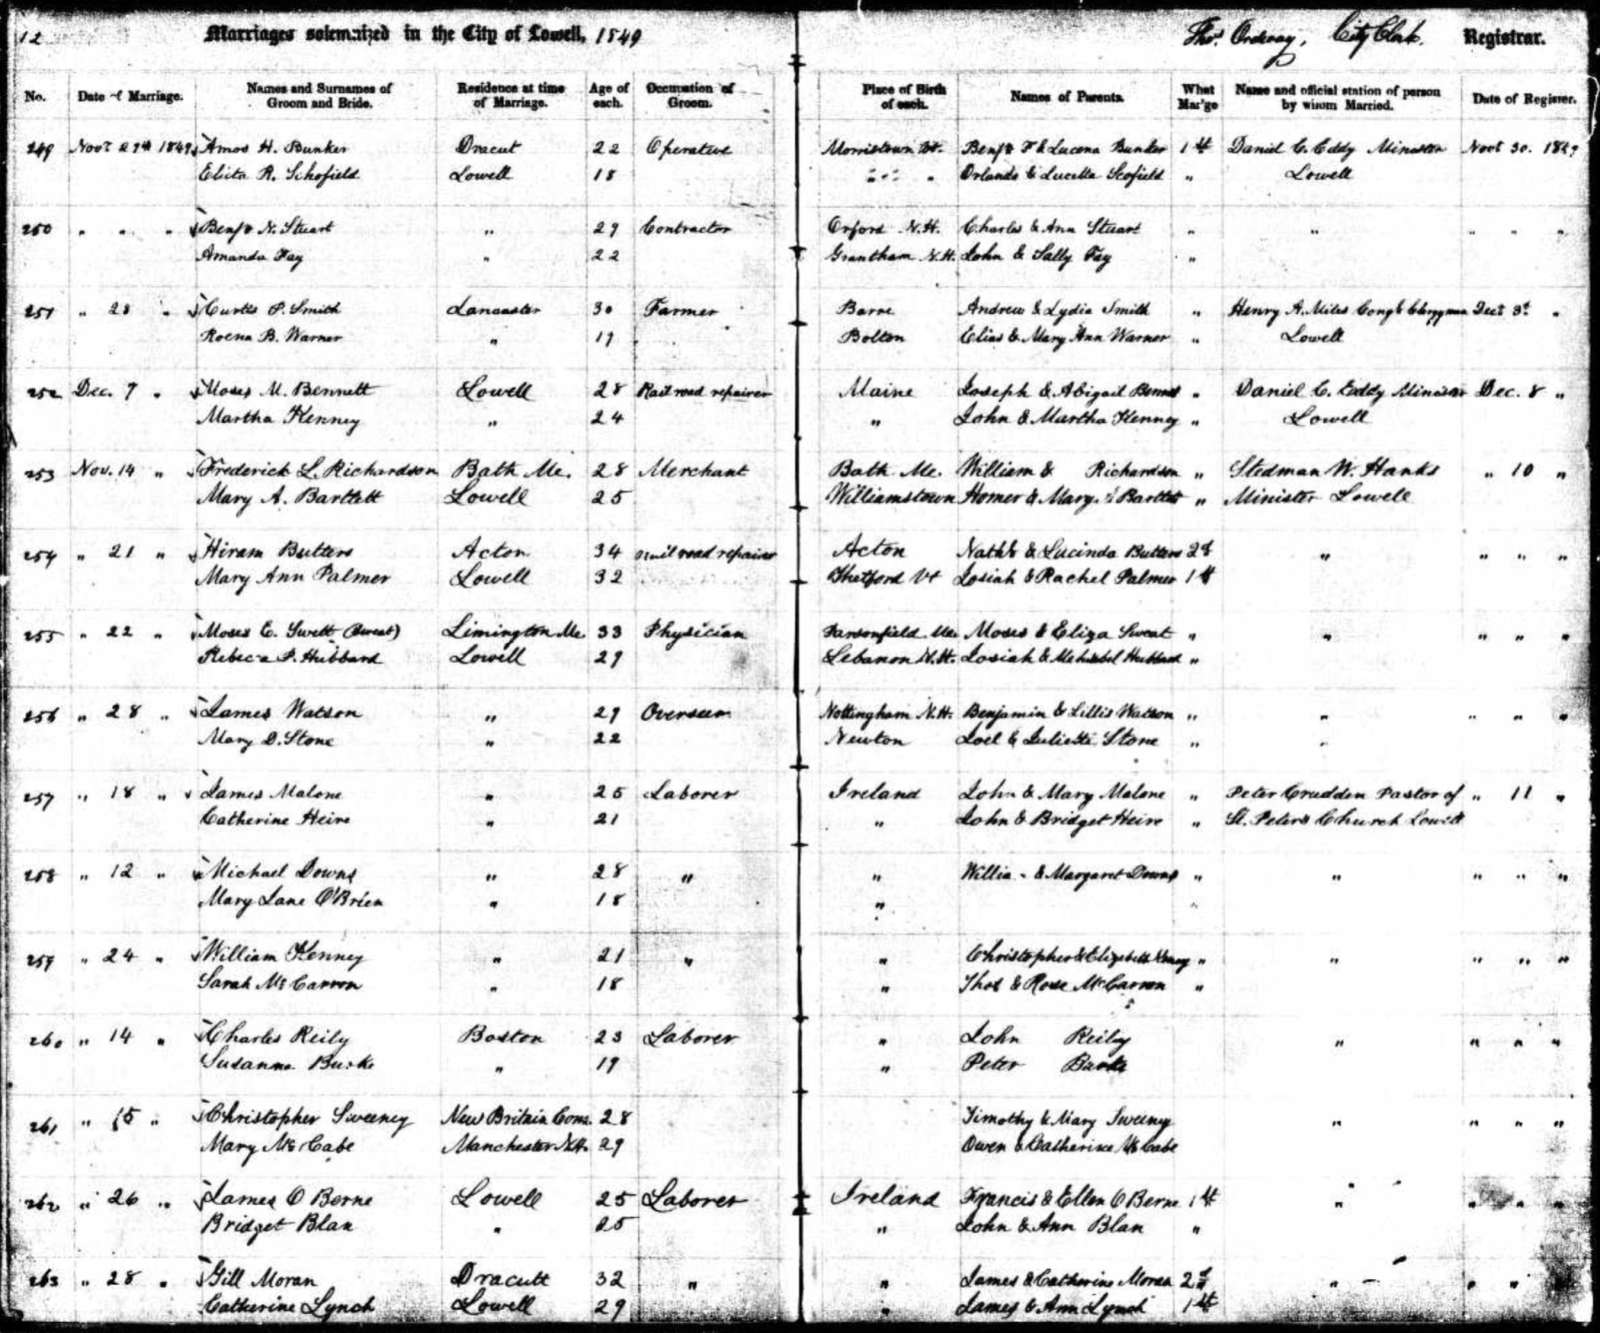 12 Marriages solemnized in the City of Lowell, 1849 Thos. Ordway, City Clerk. Registrar.
No. Date of Marriage. Names and Surnames of Groom and Bride. Residence at time of Marriage. Age of each. Occupation of Groom. Place of Birth of each. Names of Parents. What Mar'ge Name and official station of person by whom Married. Date of Register.
249 Novr 29th 1849 Amos H. Bunker Dracut 22 Operative Morristown Vt. Benjn F & Lucena Bunker 1st Daniel C. Eddy Minister Novr 30. 1849
Elvita R. Schofield Lowell 18 " " " Orlando & Lucella Scofield " Lowell
250 " " " Benjn N. Stuart " 29 Contractor Orford N.H. Charles & Ann Stuart " " " " "
Amanda Fay " 22 Grantham N.H. John & Sally Fay "
251 " 28 " Curtis P. Smith Lancaster 30 Farmer Barre Andrew & Lydia Smith " Henry A. Miles Congl Clergyman Decr 3d "
Roena B. Warner " 19 Bolton Elias & Mary Ann Warner " Lowell
252 Dec. 7 " Moses M. Bennett Lowell 28 Rail road repairer Maine Joseph & Abigail Bennet " Daniel C. Eddy Minister Dec. 8 "
Martha Kenney " 24 " John & Martha Kenney " Lowell
253 Nov. 14 " Frederick L. Richardson Bath Me. 28 Merchant Bath Me. William & Richardson " Stedman W. Hanks " 10 "
Mary A. Bartlett Lowell 25 Williamstown Homer & Mary A Bartlett " Minister Lowell
254 " 21 " Hiram Butters Acton 34 Rail road repairer Acton Nathl & Lucinda Butters 2d " " " "
Mary Ann Palmer Lowell 32 Thetford Vt Josiah & Rachel Palmer 1st
255 " 22 " Moses E. Swett (Sweat) Limington Me. 33 Physician Parsonfield Me. Moses & Eliza Sweat " " " " "
Rebecca P. Hubbard Lowell 29 Lebanon N.H. Josiah & Mehitabel Hubbard "
256 " 28 " James Watson " 29 Overseer Nottingham N.H. Benjamin & Lillis Watson " " " " "
Mary D. Stone " 22 Newton Joel & Juliette Stone " "
257 " 18 " James Malone " 25 Laborer Ireland John & Mary Malone " Peter Crudden Pastor of " 11 "
Catherine Heire " 21 " John & Bridget Heire " St. Peters Church Lowell
258 " 12 " Michael Downs " 28 " " Willia & Margaret Downs " " " " "
Mary Jane O'Brien " 18 " "
259 " 24 " William Kenney " 21 " " Christopher & Elizabeth Kenney " " " " "
Sarah McCarron " 18 " Thos & Rose McCarron "
260 " 14 " Charles Reily Boston 23 Laborer " John Reily " " " "
Susanna Burke " 19 " Peter Burke
261 " 15 " Christopher Sweeney New Britain Conn. 28 Timothy & Mary Sweeny " " " "
Mary McCabe Manchester N.H. 29 Owen & Catherine McCabe
262 " 26 " James O Berne Lowell 25 Laborer Ireland Francis & Ellen O Berne 1st " " " "
Bridget Blan " 25 " John & Ann Blan "
263 " 28 " Gill Moran Dracutt 32 " " James & Catherine Moran 2d " " " "
Catherine Lynch Lowell 29 " James & Ann Lynch 1st